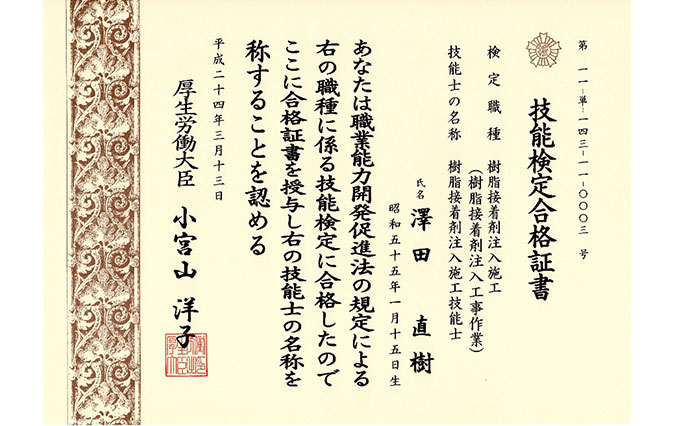 第 一一-単-一四三-一一-〇〇〇三 号
技能検定合格証書
検定職種 樹脂接着剤注入施工
(樹脂接着剤注入工事作業)
技能士の名称 樹脂接着剤注入施工技能士
氏名 澤田 直樹
昭和五十五年一月十五日生
あなたは職業能力開発促進法の規定による
右の職種に係る技能検定に合格したので
ここに合格証書を授与し右の技能士の名称を
称することを認める
平成二十四年三月十三日
厚生労働大臣 小宮山 洋子